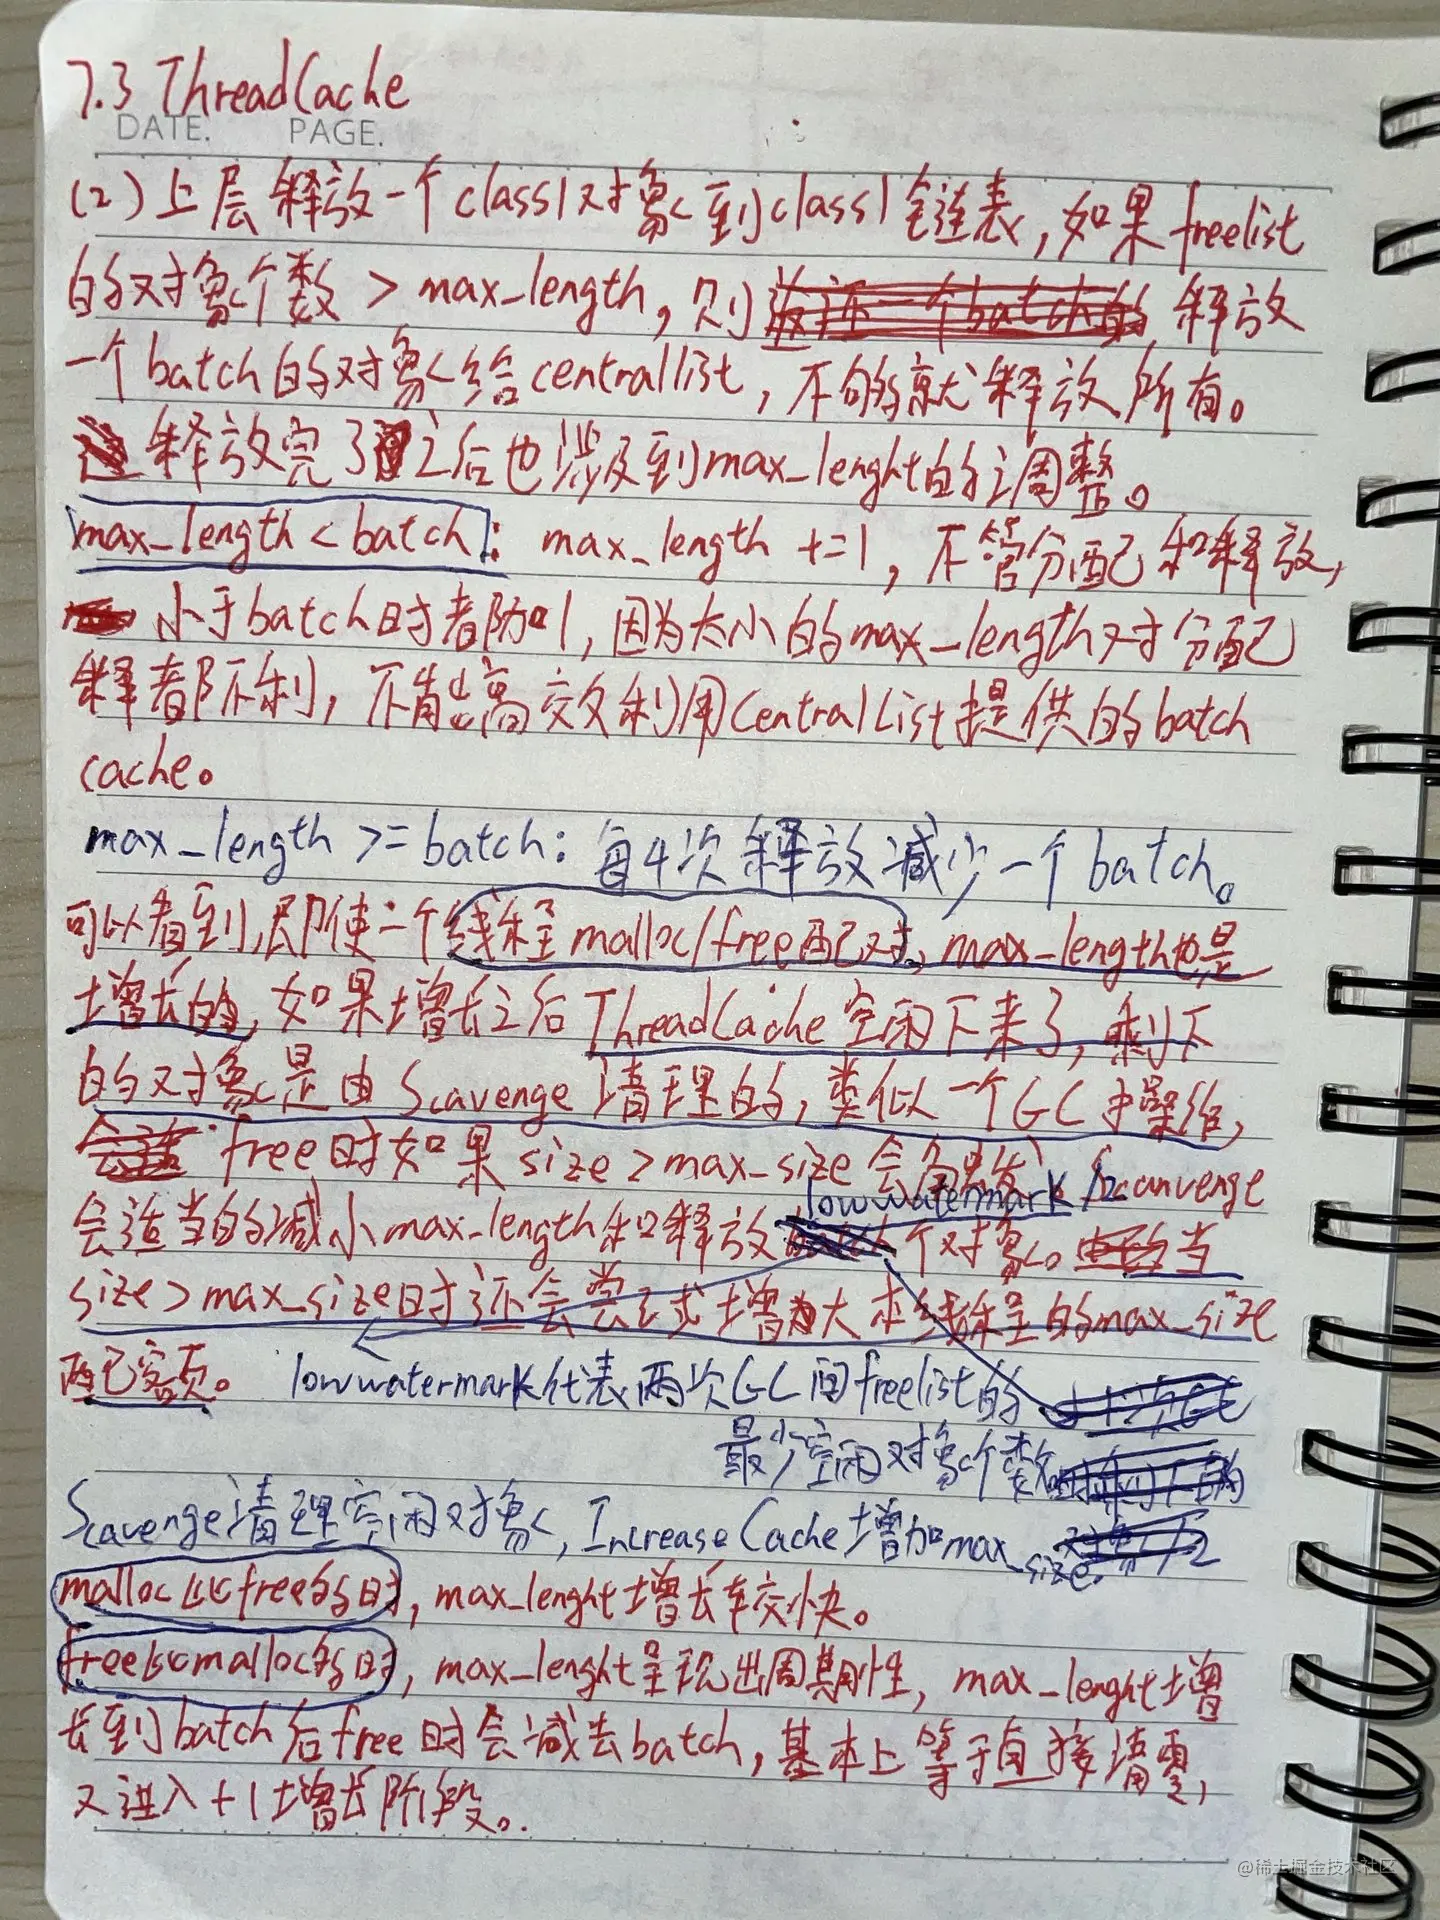 7.3 ThreadCache
DATE. PAGE.
(2)上层释放一个class1对象到class1链表,如果freelist
的对象个数 > max_length,则 释放
一个batch的对象给centrallist,不够就释放所有。
释放完了之后也涉及到max_lenght的调整。
max_length < batch: max_length +=1,不管分配和释放,
小于batch时都加1,因为太小的max_length对分配
释都不利,不能高效利用CentralList提供的batch
cache。
max_length >= batch: 每4次释放减少一个batch。
可以看到,即使一个线程malloc/free配对,max_length也是
增长的,如果增长之后ThreadCache空闲下来了,剩下
的对象是由Scavenge清理的,类似一个GC操作,
free时如果size > max_size会触发。Scanvenge
会适当的减小max_length和释放lowwatermark/2个对象。当
size > max_size时还会尝试增大本线程的max_size
配额。 lowwatermark代表两次GC间freelist的
最少空闲对象个数
Scavenge清理空闲对象,IncreaseCache增加max_size。
malloc比free多时,max_lenght增长较快。
free比malloc多时,max_lenght呈现出周期性,max_lenght增
长到batch后free时会减去batch,基本上等于直接清零,
又进入+1增长阶段。
@稀土掘金技术社区